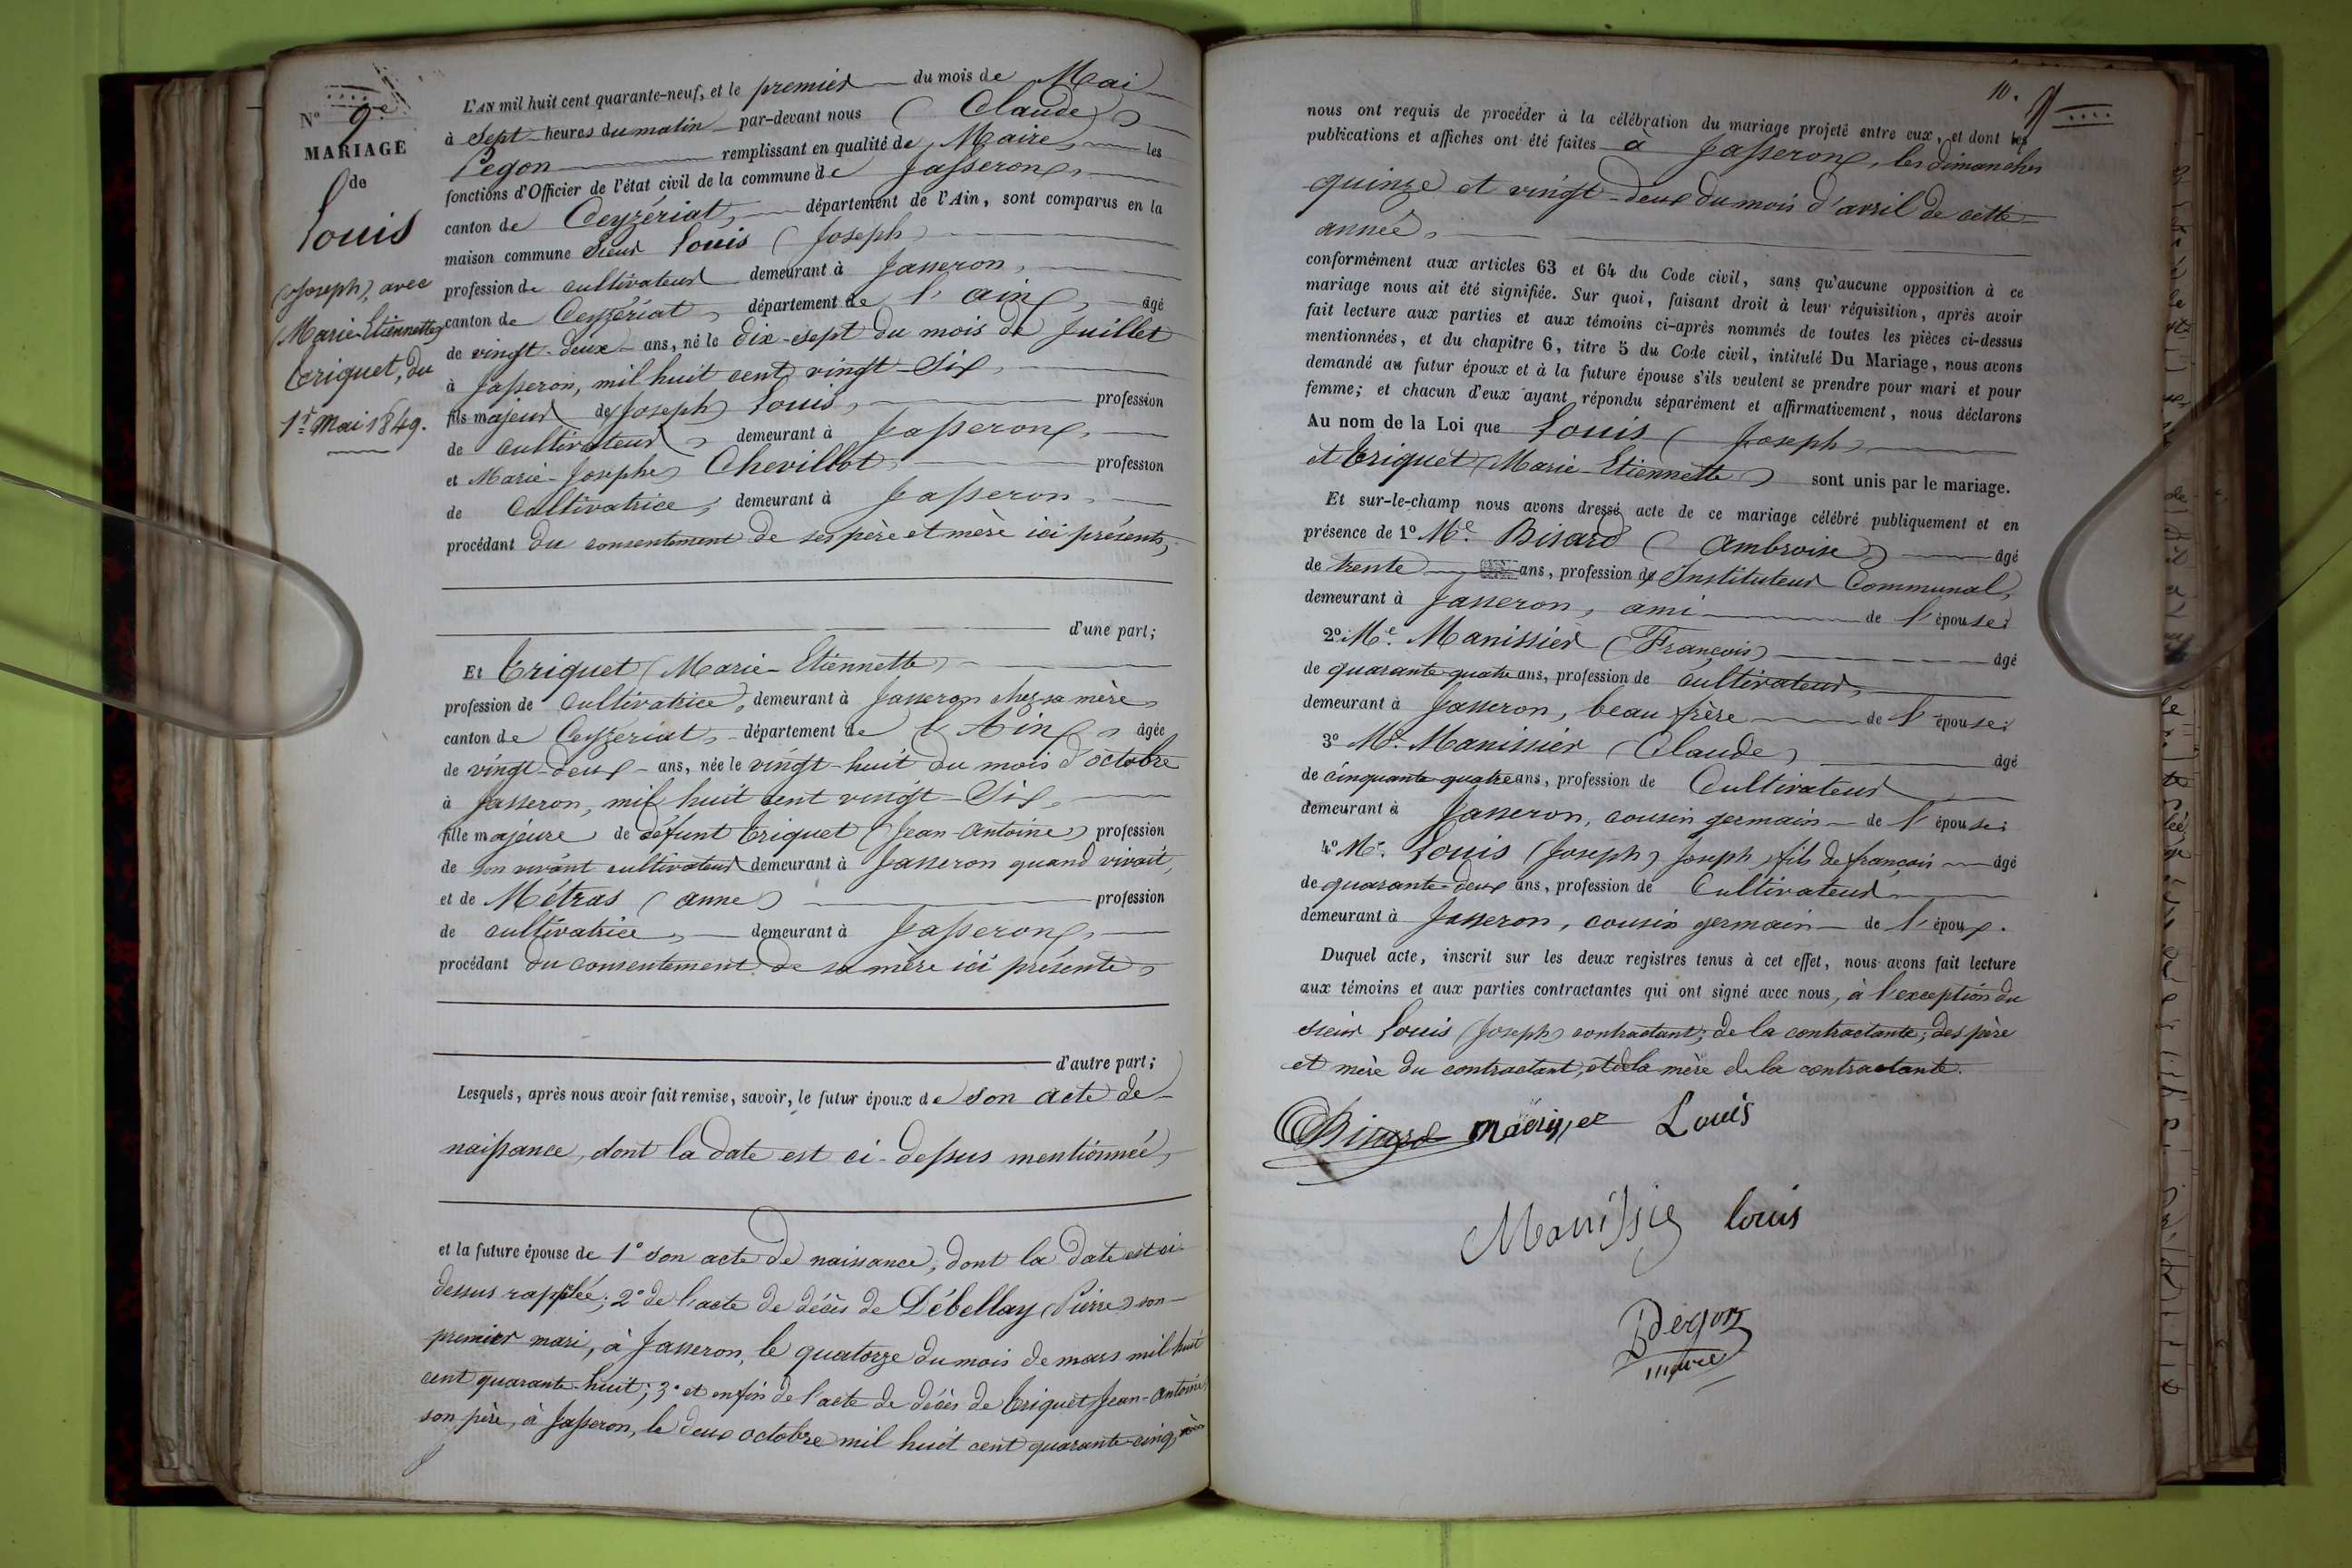 N° 9e
MARIAGE
de
Louis
(Joseph), avec
(Marie-Etiennette)
Criquet, du
1er Mai 1849.
L'AN mil huit cent quarante-neuf, et le premier du mois de Mai
à sept heures du matin par-devant nous (Claude)
Pegon remplissant en qualité de Maire, les
fonctions d'Officier de l'état civil de la commune de Jasseron,
canton de Ceyzériat, département de l'Ain, sont comparus en la
maison commune Sieur Louis (Joseph)
profession de cultivateur demeurant à Jasseron,
canton de Ceyzériat, département de l'ain, âgé
de vingt-deux ans, né le dix-sept du mois de Juillet
à Jasseron, mil huit cent vingt-Six,
fils majeur de Joseph Louis, profession
de cultivateur, demeurant à Jasseron,
et Marie-Josephe Chevillot, profession
de Cultivatrice, demeurant à Jasseron,
procédant du consentement de ses père et mère ici présents,
d'une part;
Et Criquet (Marie-Etiennette)
profession de Cultivatrice, demeurant à Jasseron chez sa mère,
canton de Ceyzériat, département de l'Ain, âgée
de vingt-deux ans, née le vingt-huit du mois d'octobre
à Jasseron, mil huit cent vingt-Six,
fille majeure de défunt Criquet (Jean-Antoine) profession
de son vivant cultivateur demeurant à Jasseron quand vivait,
et de Métras (anne) profession
de cultivatrice, demeurant à Jasseron,
procédant du consentement de sa mère ici présente,
d'autre part;
Lesquels, après nous avoir fait remise, savoir, le futur époux de son acte de
naissance, dont la date est ci-dessus mentionnée,
et la future épouse de 1° son acte de naissance, dont la date est ci-
dessus rappelée; 2° de l'acte de décès de Débellay (Pierre) son
premier mari, à Jasseron, le quatorze du mois de mars mil huit
cent quarante-huit; 3° et enfin de l'acte de décès de Criquet Jean-Antoine
son père, à Jasseron, le deux octobre mil huit cent quarante-cinq,
10.
nous ont requis de procéder à la célébration du mariage projeté entre eux, et dont les
publications et affiches ont été faites à Jasseron, les dimanches
quinze et vingt-deux du mois d'avril de cette
année,
conformément aux articles 63 et 64 du Code civil, sans qu'aucune opposition à ce
mariage nous ait été signifiée. Sur quoi, faisant droit à leur réquisition, après avoir
fait lecture aux parties et aux témoins ci-après nommés de toutes les pièces ci-dessus
mentionnées, et du chapitre 6, titre 5 du Code civil, intitulé Du Mariage, nous avons
demandé au futur époux et à la future épouse s'ils veulent se prendre pour mari et pour
femme; et chacun d'eux ayant répondu séparément et affirmativement, nous déclarons
Au nom de la Loi que Louis (Joseph)
et Criquet (Marie-Etiennette) sont unis par le mariage.
Et sur-le-champ nous avons dressé acte de ce mariage célébré publiquement et en
présence de 1° Me. Bisard (Ambroise) âgé
de trente ans, profession de Instituteur Communal,
demeurant à Jasseron, ami de l'épouse;
2° Me. Manissier (François) âgé
de quarante-quatre ans, profession de cultivateur,
demeurant à Jasseron, beau frère de l'épouse;
3° Me. Manissier (Claude) âgé
de cinquante-quatre ans, profession de Cultivateur
demeurant à Jasseron, cousin germain de l'épouse;
4° Me. Louis (Joseph) Joseph, fils de françois âgé
de quarante-deux ans, profession de Cultivateur
demeurant à Jasseron, cousin germain de l'époux.
Duquel acte, inscrit sur les deux registres tenus à cet effet, nous avons fait lecture
aux témoins et aux parties contractantes qui ont signé avec nous, à l'exception du
sieur Louis (Joseph) contractant; de la contractante; des père
et mère du contractant, et de la mère de la contractante.
Bisard Louis
Manissie louis
Pegon
maire